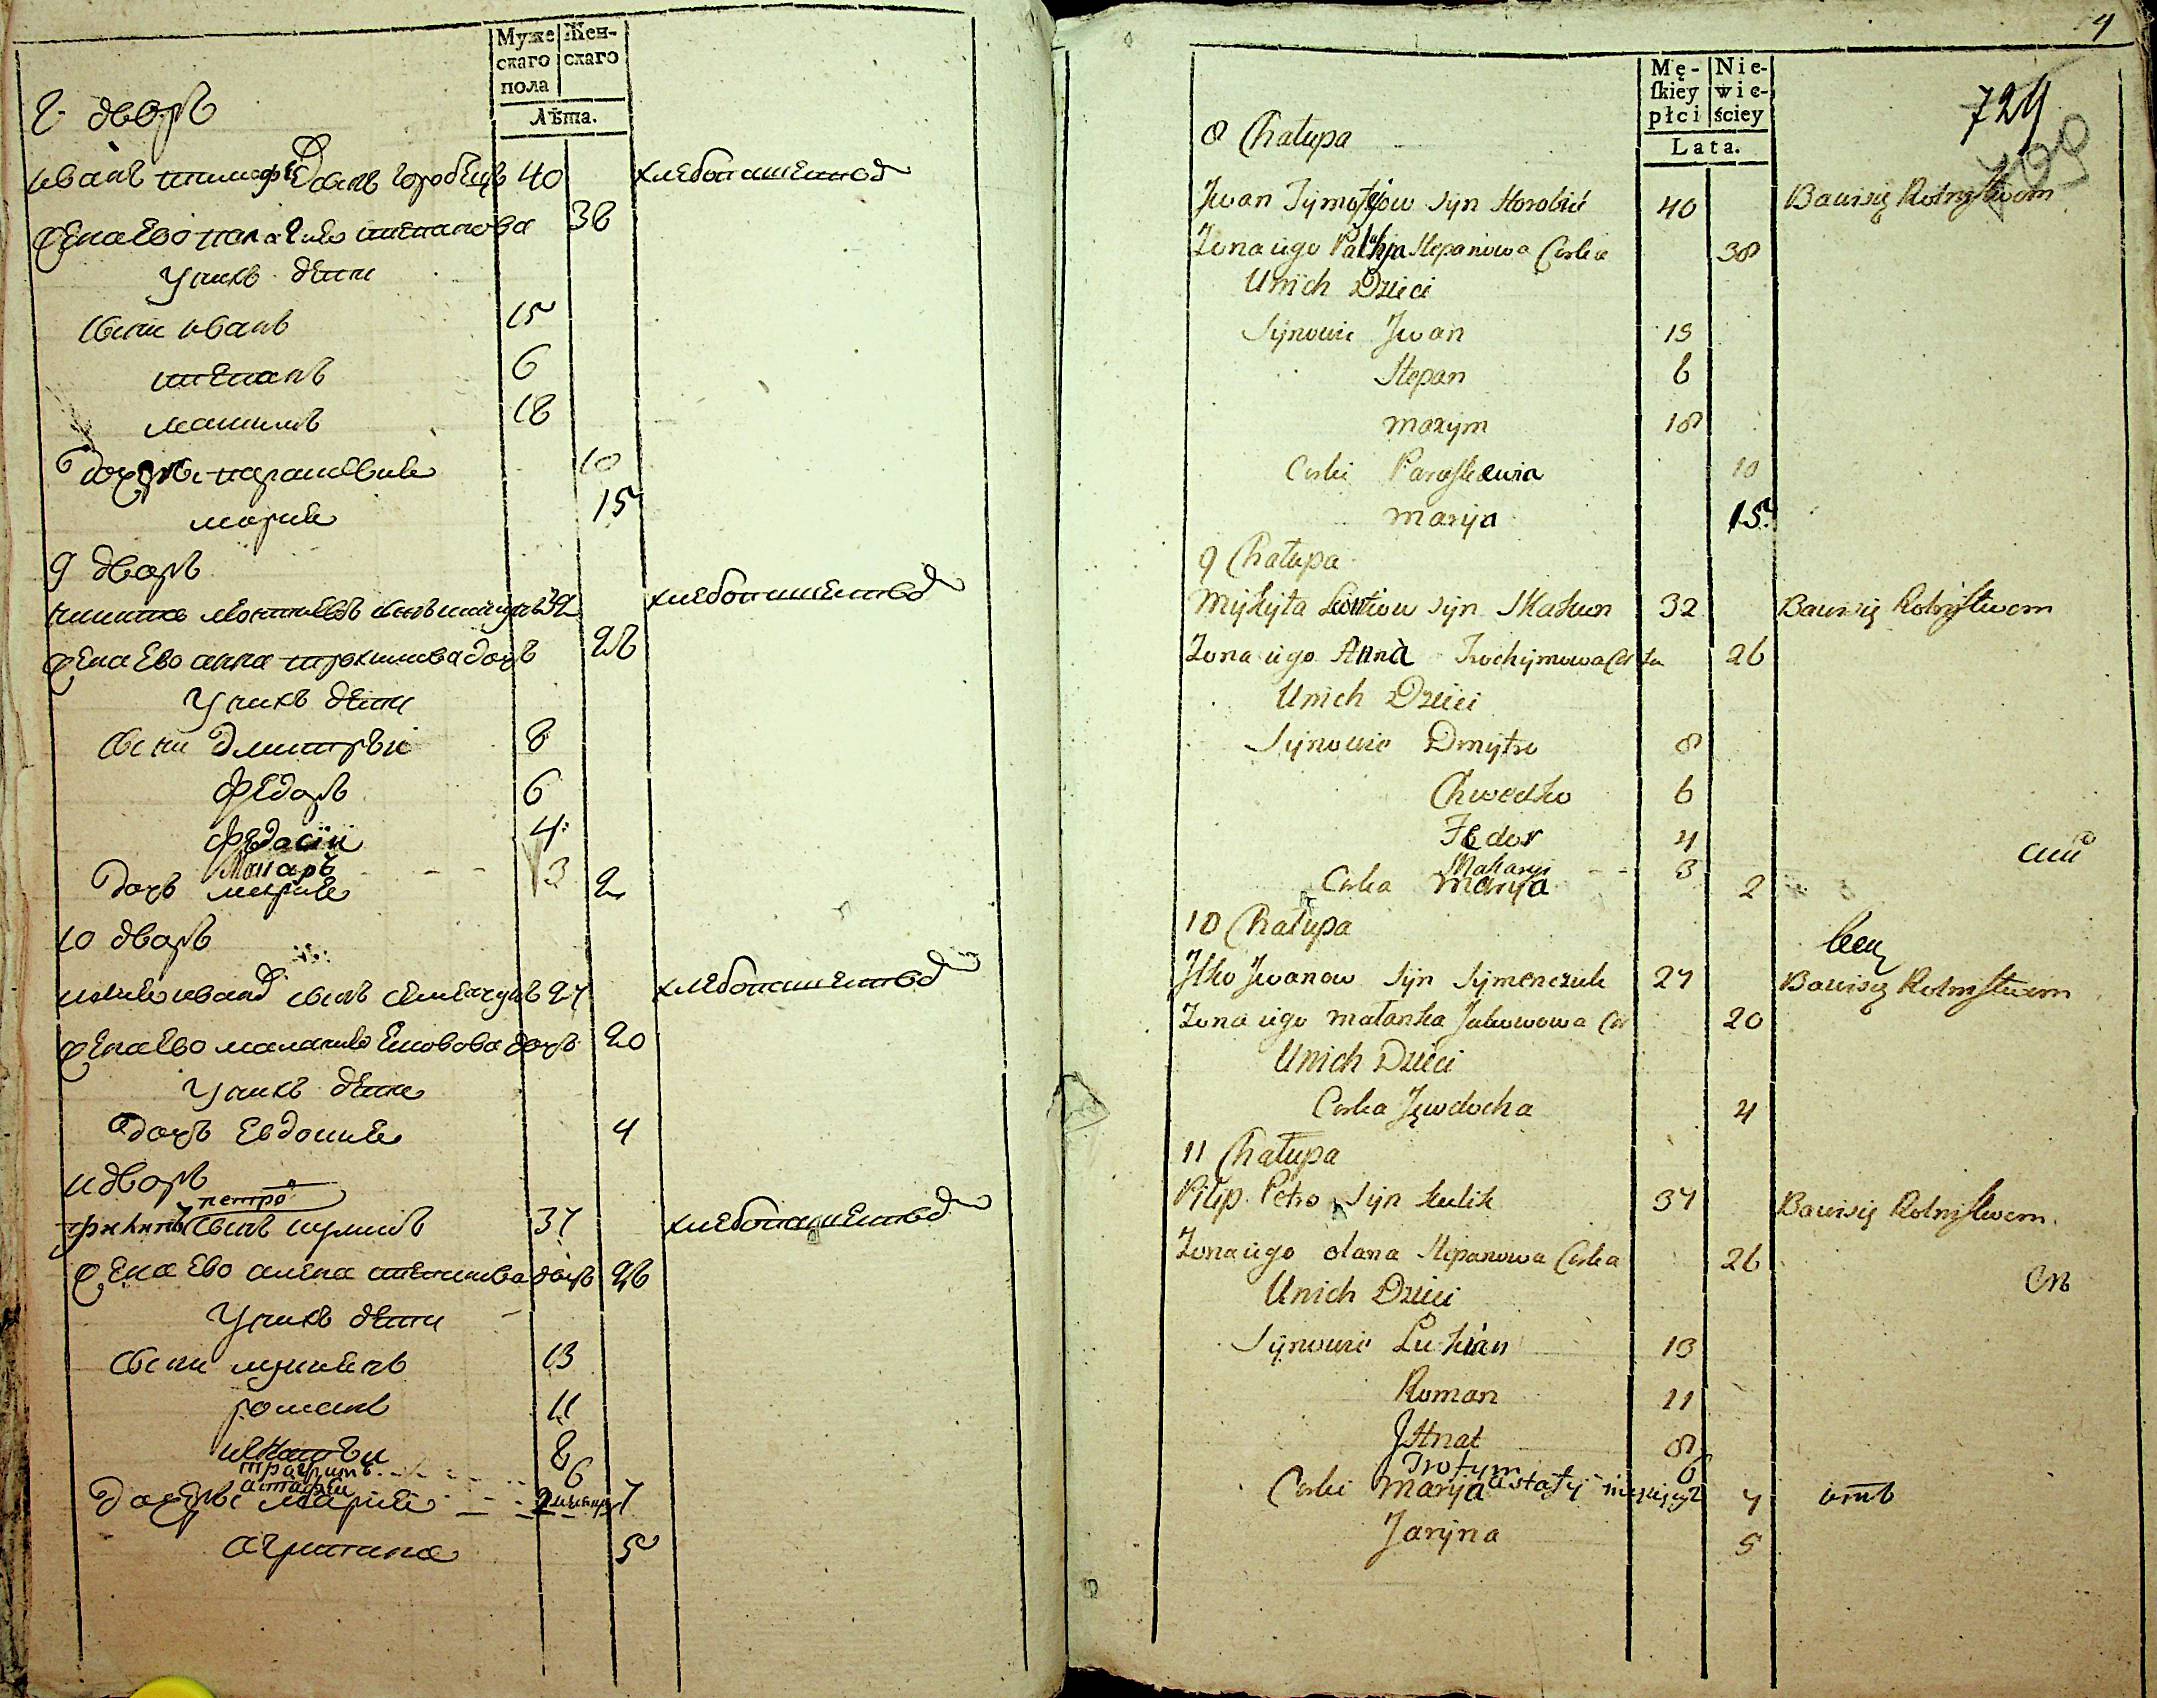 Муже Жен-
скаго скаго
пола
Лѣта.
8 дворъ
иванъ тимофѣевъ сынъ горобецъ 40 хлебопашеством
жена ево палагия степанова 38
У нихъ дети
сыни иванъ 15
степанъ 6
максимъ 18
дочери парасковия 10
мария 15
9 дворъ
никита леонтиевъ сынъ 32 хлебопашеством
жена ево анна трохимова дочь 26
У нихъ дети
сыни дмитрѣи 8
федоръ 6
федосіи 4
Макаръ - - - 3
дочь мария 2
10 дворъ
илия иванов сынъ семенчукъ 27 хлебопашеством
жена ево малания 20
У нихъ дети
дочь евдокия 4
11 дворъ
петров
филипъ сынъ куликъ 37 хлебопашеством
жена ево алена степанова дочь 26
У нихъ дети
сыни лукиянъ 13
романъ 11
игнатъи 8
трофимъ 6
астафеи
дочери мария 7
агрипина 5
4
Mę- Nie-
ſkiey wie-
płci ściey
Lata.
729
8 Chałupa
Jwan Tymofijow syn Horobiec 40 Bawi się Rolnistwem
Zona iego Palahija Stepanowa Corka 38
U nich Dzieci
Synowie Jwan 15
Stepan 6
maxym 18
Corki Paraskewia 10
marija 15
9 Chałupa
Mykyta Leontiow syn Skakun 32 Bawi się Rolnistwem
Zona iego Anna Trochymowa Corka 26
U nich Dzieci
Synowie Dmytro 8
Chwedko 6
Fedor 4
Makary - - 3
Corka Marya 2
10 Chałupa
Jlko Jwanow syn Symenczuk 27 Bawi się Rolnistwem
Zona iego małanka Jakowowa Cor 20
U nich Dzieci
Corka Jewdocha 4
11 Chałupa
Pilip Petro syn kulik 37 Bawi się Rolnistwem
Zona iego olana Stepanowa Corka 26
U nich Dzieci
Synowie Lukian 13
Roman 11
Jhnat 8
Trofym 6
Corki Marija astafy 7
Jaryna 5